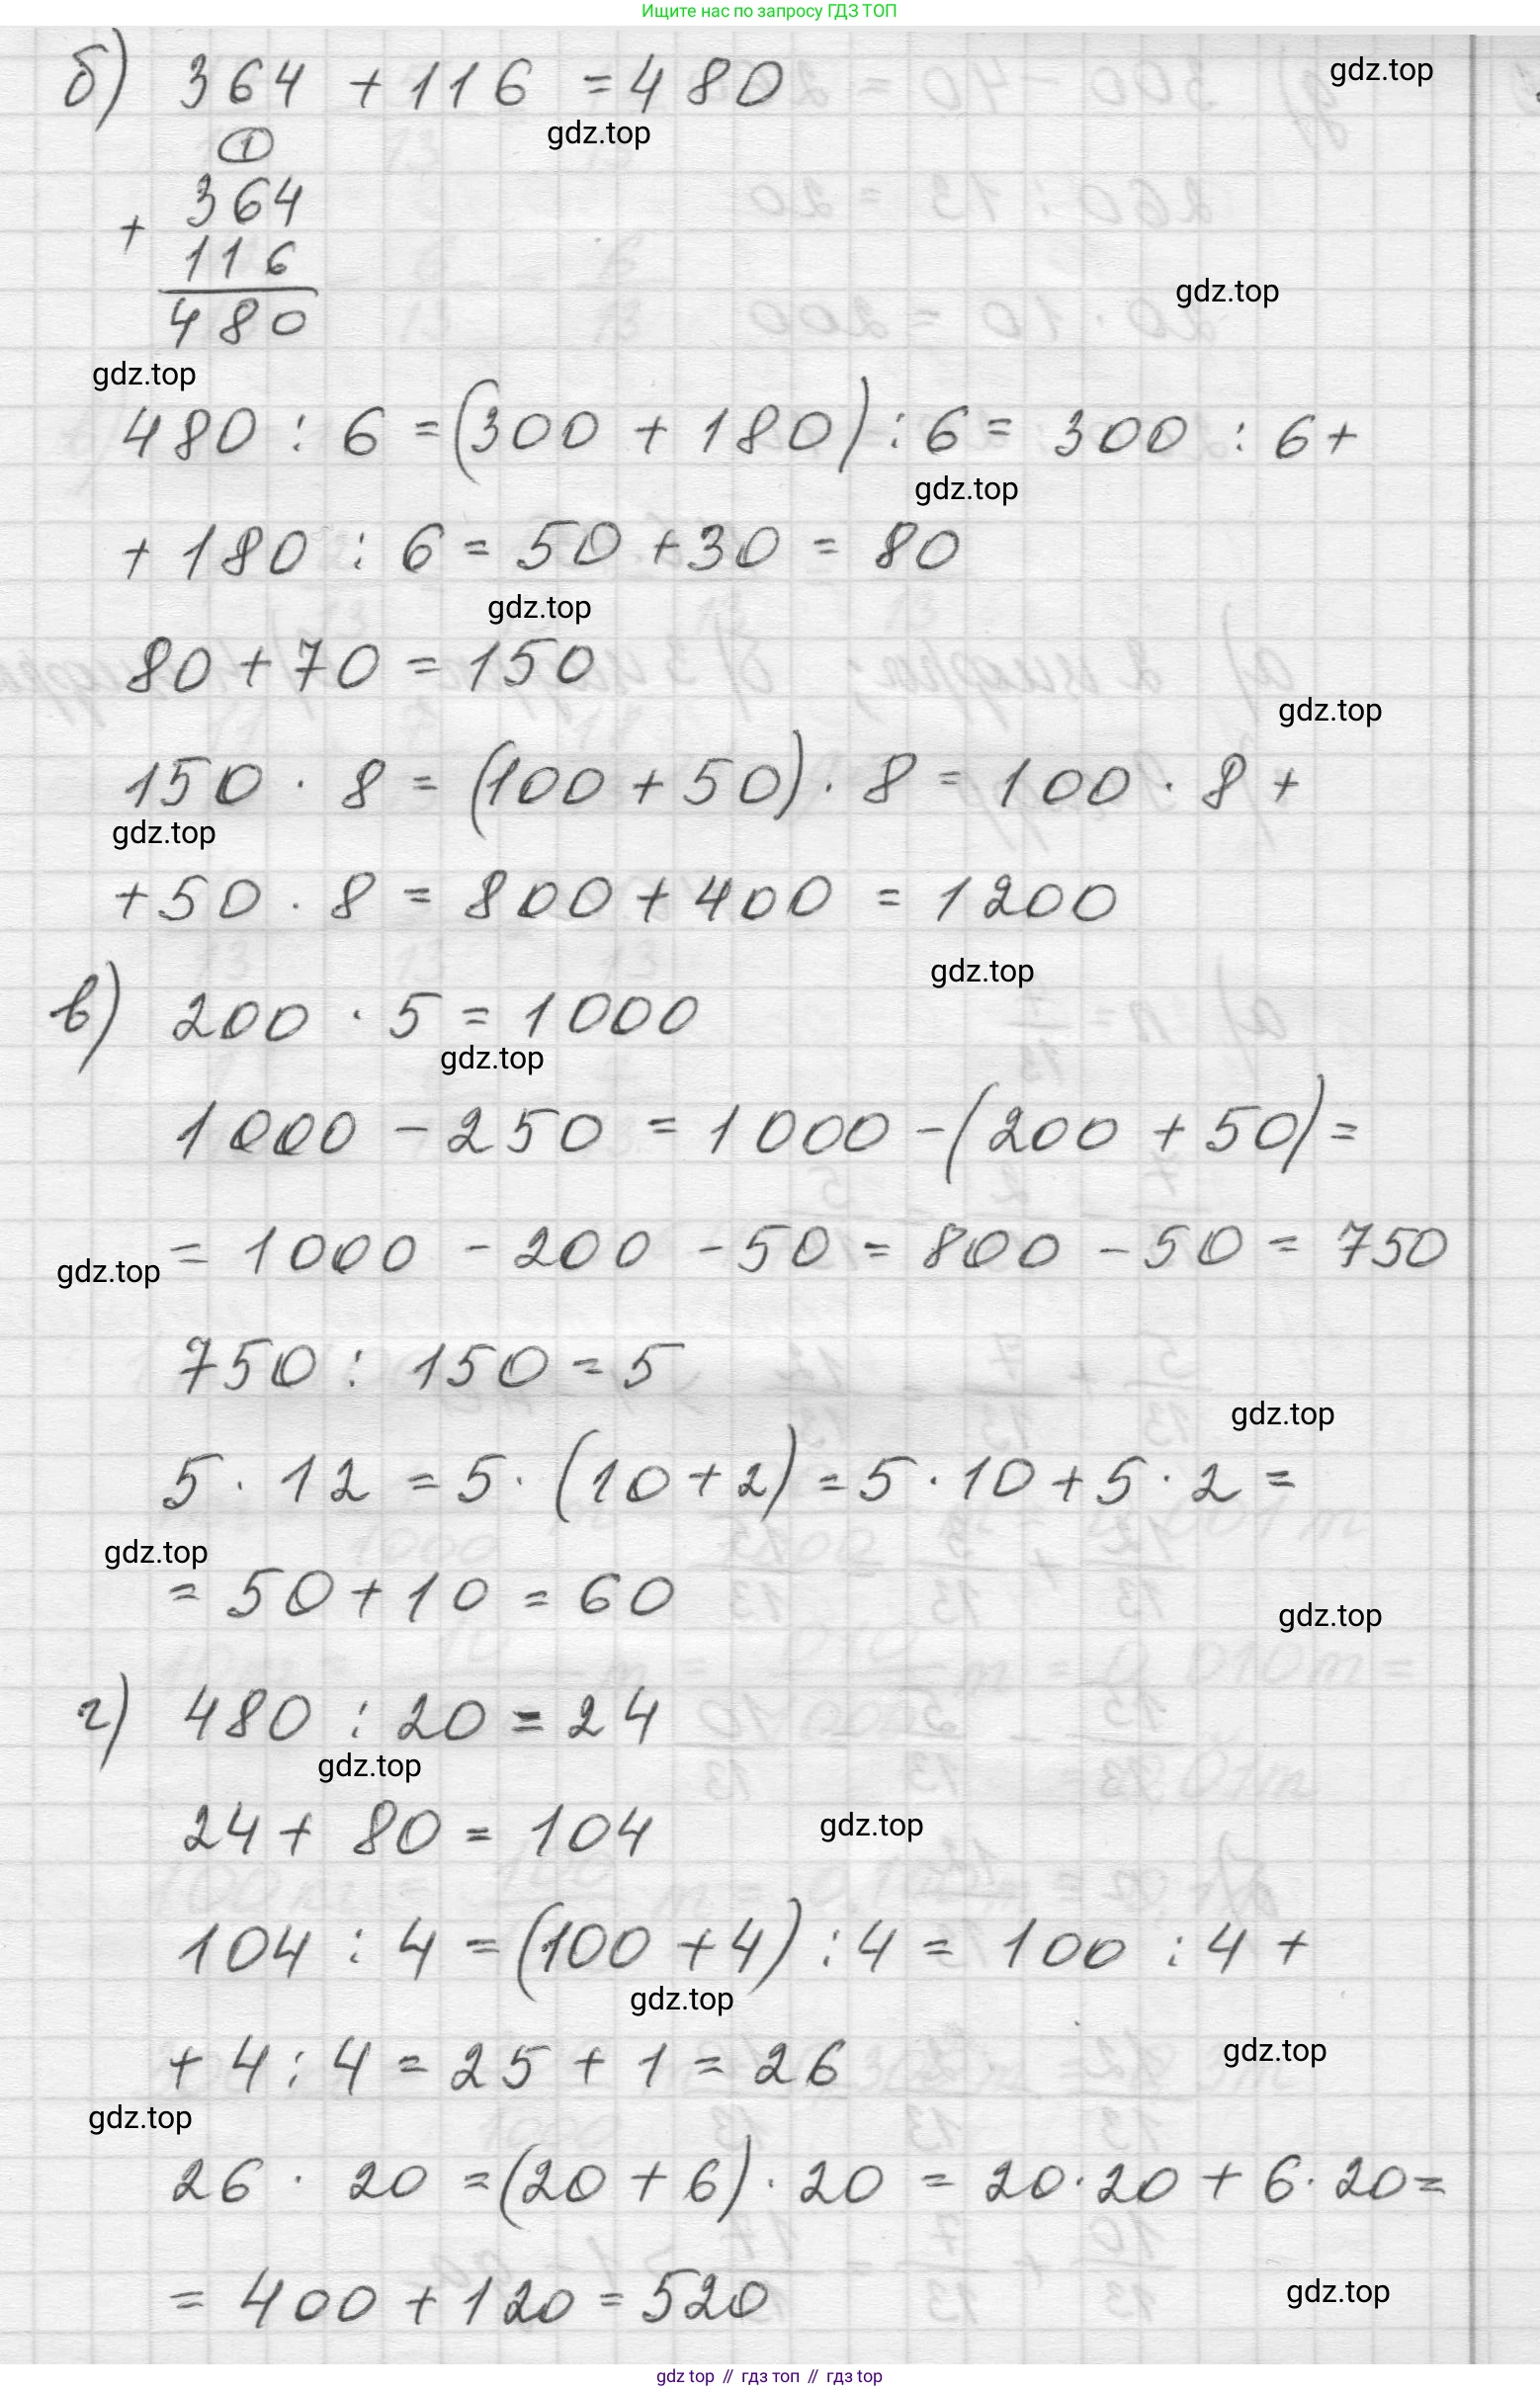 Ищите нас по запросу ГДЗ ТОП
б) 364 + 116 = 480
gdz.top
gdz.top
1
364
+
116
480
gdz.top
gdz.top
480 : 6 = (300 + 180) : 6 = 300 : 6 +
gdz.top
+ 180 : 6 = 50 + 30 = 80
gdz.top
80 + 70 = 150
gdz.top
150 · 8 = (100 + 50) · 8 = 100 · 8 +
gdz.top
+ 50 · 8 = 800 + 400 = 1200
gdz.top
в) 200 · 5 = 1000
gdz.top
1000 - 250 = 1000 - (200 + 50) =
= 1000 - 200 - 50 = 800 - 50 = 750
gdz.top
750 : 150 = 5
gdz.top
5 · 12 = 5 · (10 + 2) = 5 · 10 + 5 · 2 =
gdz.top
= 50 + 10 = 60
gdz.top
г) 480 : 20 = 24
gdz.top
24 + 80 = 104
gdz.top
104 : 4 = (100 + 4) : 4 = 100 : 4 +
gdz.top
+ 4 : 4 = 25 + 1 = 26
gdz.top
gdz.top
26 · 20 = (20 + 6) · 20 = 20 · 20 + 6 · 20 =
= 400 + 120 = 520
gdz.top
gdz top // гдз топ // гдз top